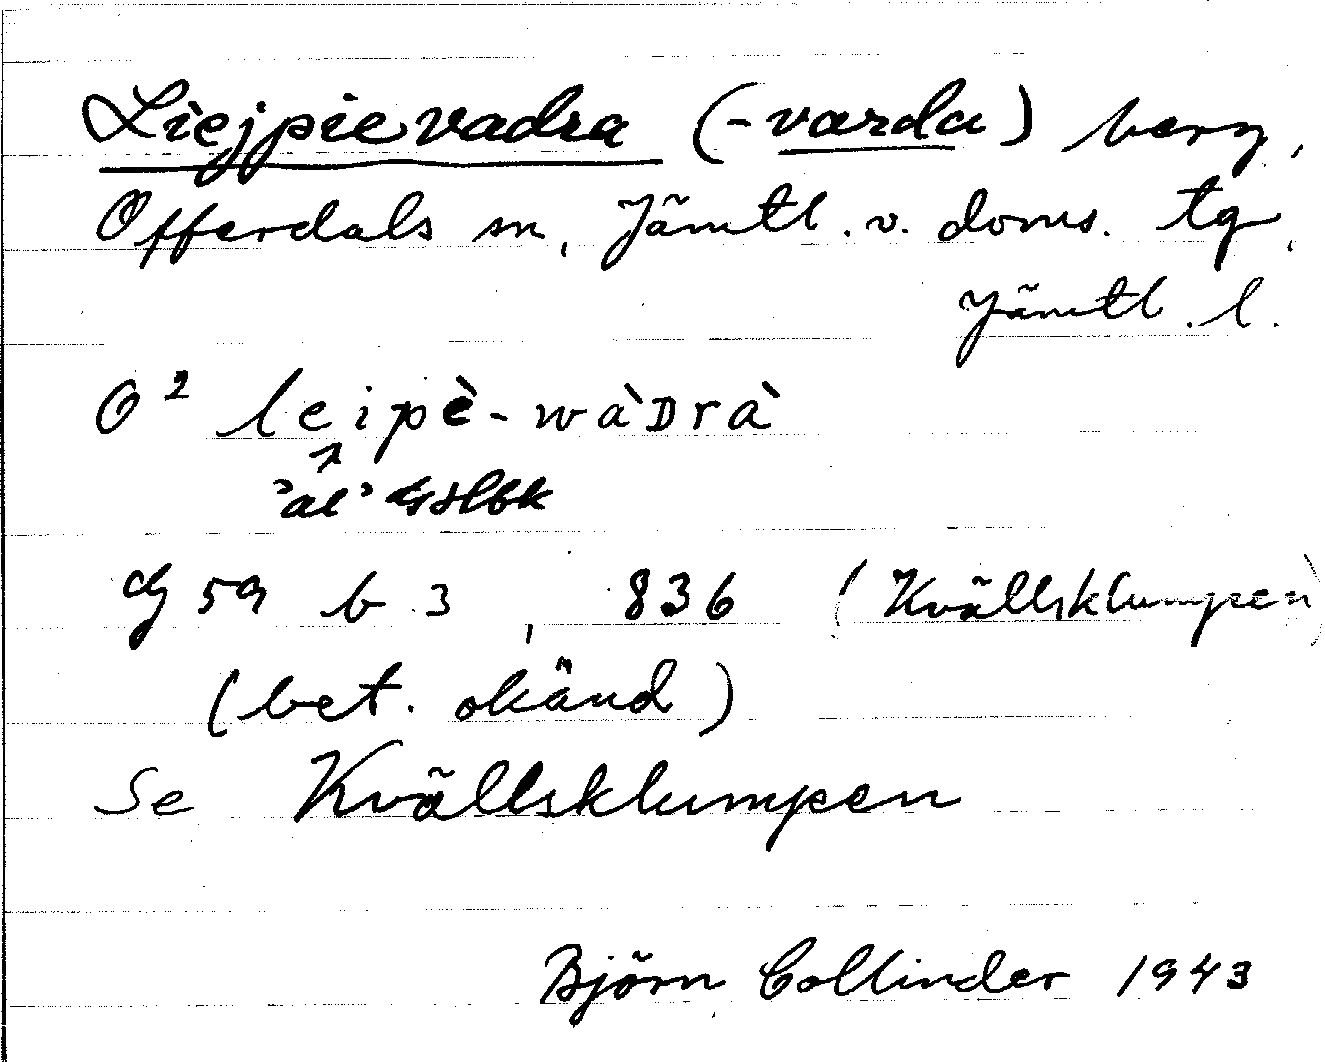 Liejpievadra (-varda) berg,
Offerdals sn, Jämtl. v. doms. tg,
Jämtl. l.
O² leipè-wàDrà
'al'
G 59 b 3, 836 (Kvällsklumpen)
(bet. okänd)
Se Kvällsklumpen
Björn Collinder 1943